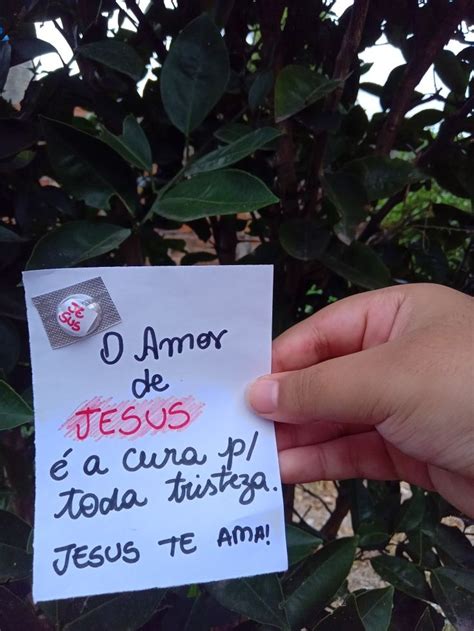 JE
SUS
O Amor
de
JESUS
é a cura p/
toda tristeza.
JESUS TE AMA!